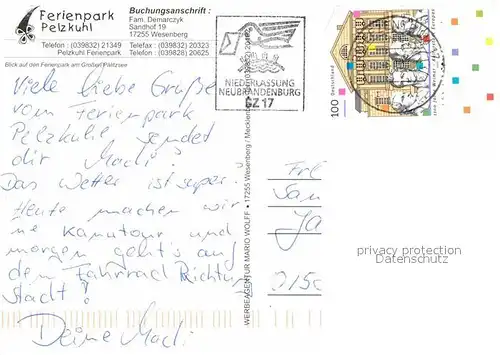 Ferienpark
Pelzkuhl
Buchungsanschrift :
Fam. Demarczyk
Sandhof 19
17255 Wesenberg
Telefon : (039832) 21349
Pelzkuhl Ferienpark
Telefax : (039832) 20323
Telefon : (039828) 20625
Blick auf den Ferienpark am Großen Pälitzsee
NIEDERLASSUNG
NEUBRANDENBURG
GZ 17
Deutschland
100
Viele liebe Grüße
vom Ferienpark
Pelzkuhle sendet
dir Madi!
Das Wetter ist super.
Heute machen wir
ne Kanutour und
morgen geht's auf
dem Fahrrad Richtung
Stadt!
Deine Madi
WERBEAGENTUR MARIO WOLFF • 17255 Wesenberg / Mecklenburg
Frl
San
Ja
privacy protection
Datenschutz